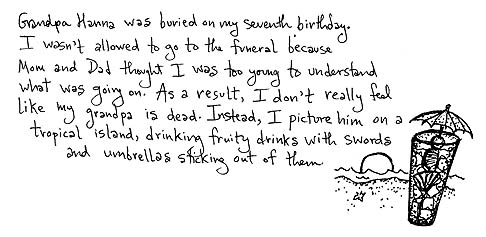 Grandpa Hanna was buried on my seventh birthday.
I wasn't allowed to go to the funeral because
Mom and Dad thought I was too young to understand
what was going on. As a result, I don't really feel
like my grandpa is dead. Instead, I picture him on a
tropical island, drinking fruity drinks with swords
and umbrellas sticking out of them